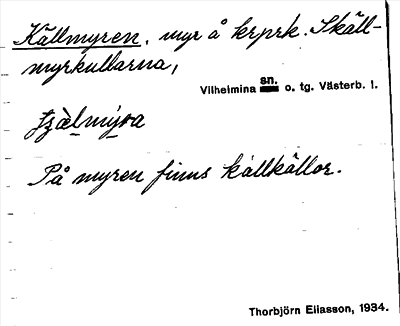 Källmyren, myr å krprk. Skäll-
myrkullarna,
Vilhelmina sn. o. tg. Västerb. l.
På myren finns kallkällor.
Thorbjörn Eliasson, 1934.